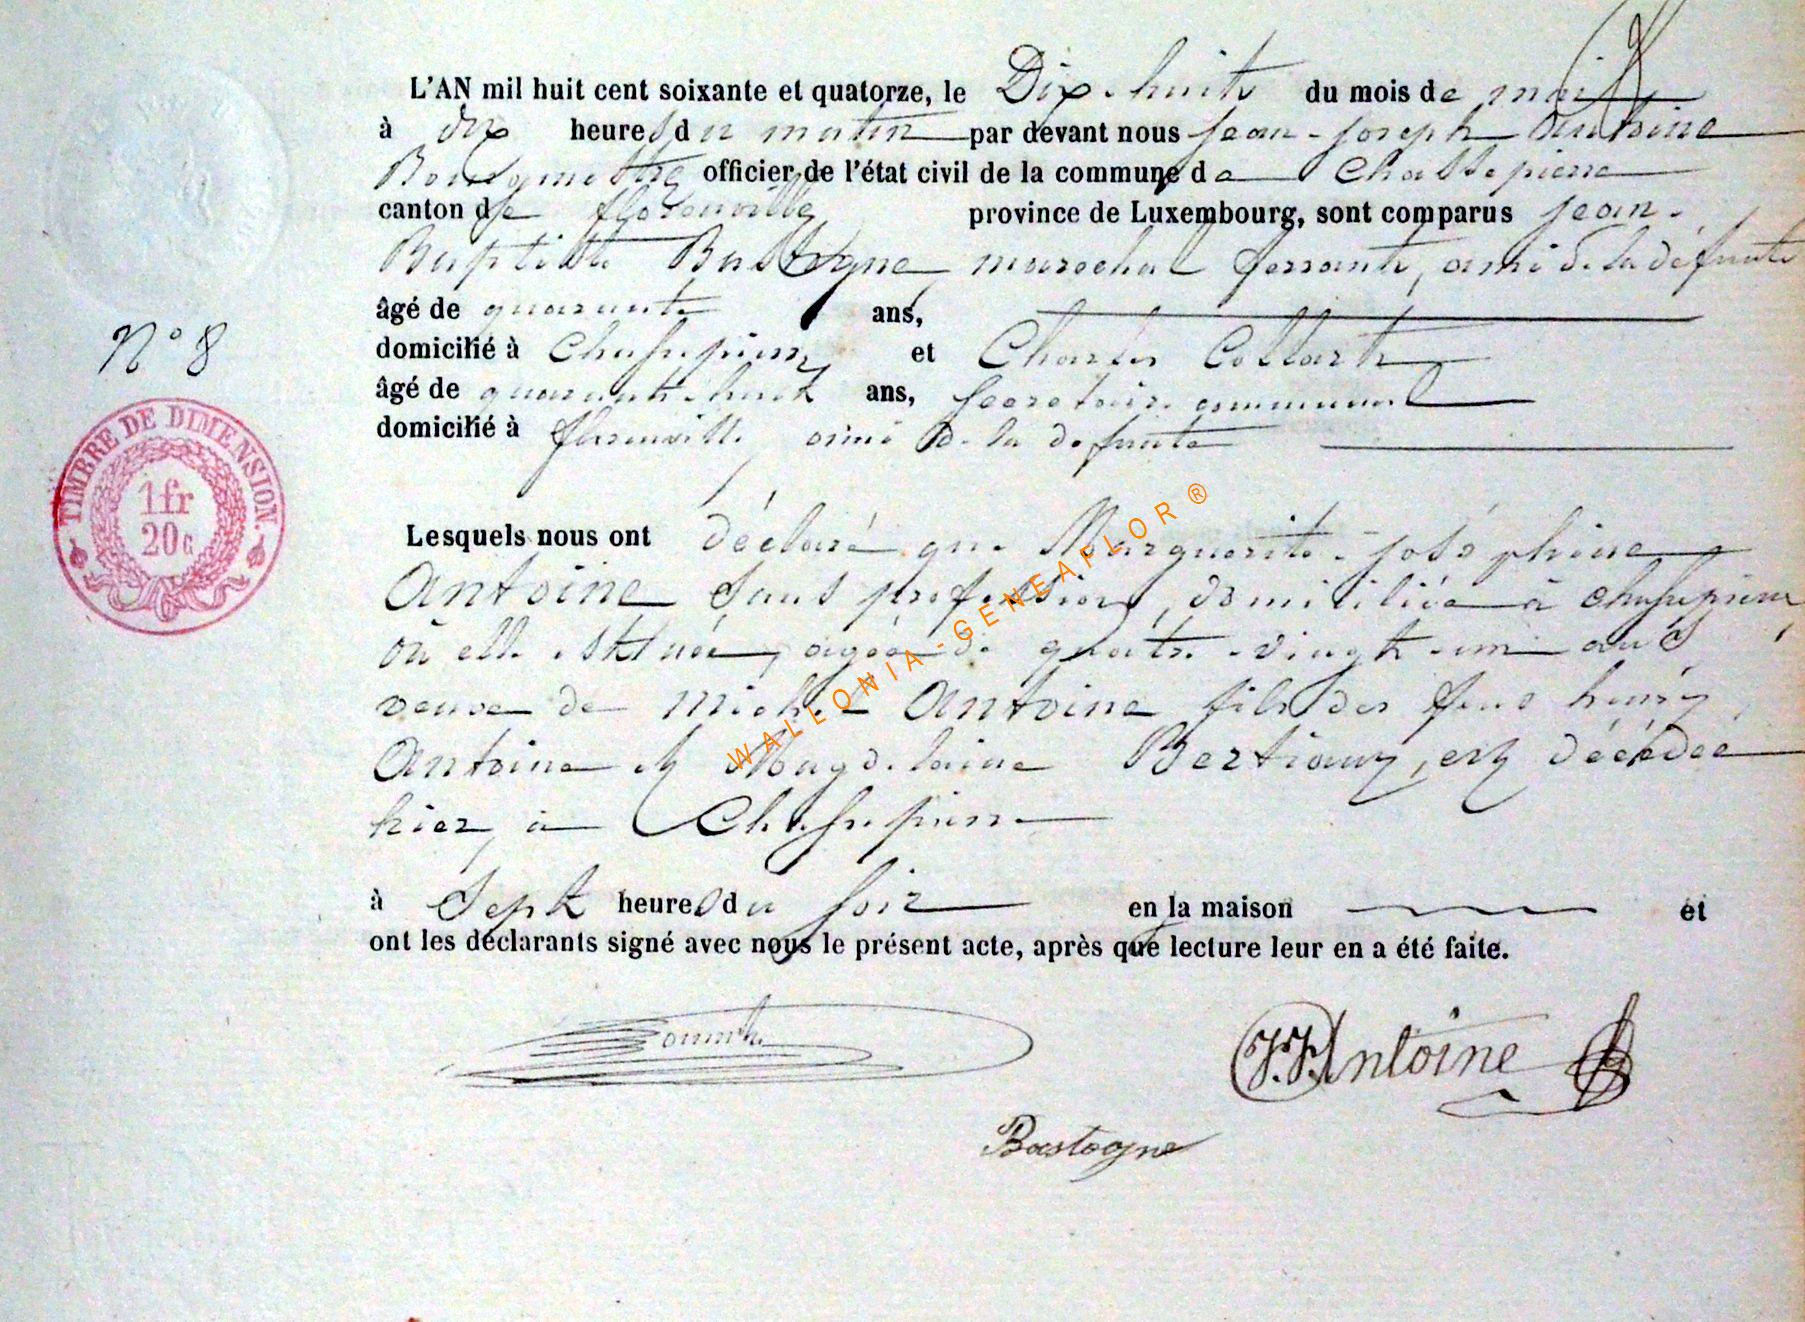 L'AN mil huit cent soixante et quatorze, le Dix-huit du mois de mai
à dix heures du matin par devant nous jean-joseph Antoine
Bourgmestre officier de l'état civil de la commune de Chassepierre
canton de florenville province de Luxembourg, sont comparus jean-
Baptiste Bastogne, marechal ferrant, ami de la défunte
âgé de quarante ans,
domicilié à Chassepierre et Charles Collart
N° 8
âgé de quarante-huit ans, Secretaire communal
domicilié à florenville, ami de la defunte
TIMBRE DE DIMENSION.
1 fr
20 c
Lesquels nous ont déclaré que Marguerite-joséphine
Antoine Sans profession, domiciliée à chassepierre
où elle est née, agée de quatre-vingt-un ans
veuve de michel Antoine fils des feus henry
Antoine et Magdelaine Bertiaux, est décédée
hier, à Chassepierre
à Sept heures du soir en la maison et
ont les déclarants signé avec nous le présent acte, après que lecture leur en a été faite.
J.J. Antoine
Bastogne
WALLONIA-GENEAFLOR®